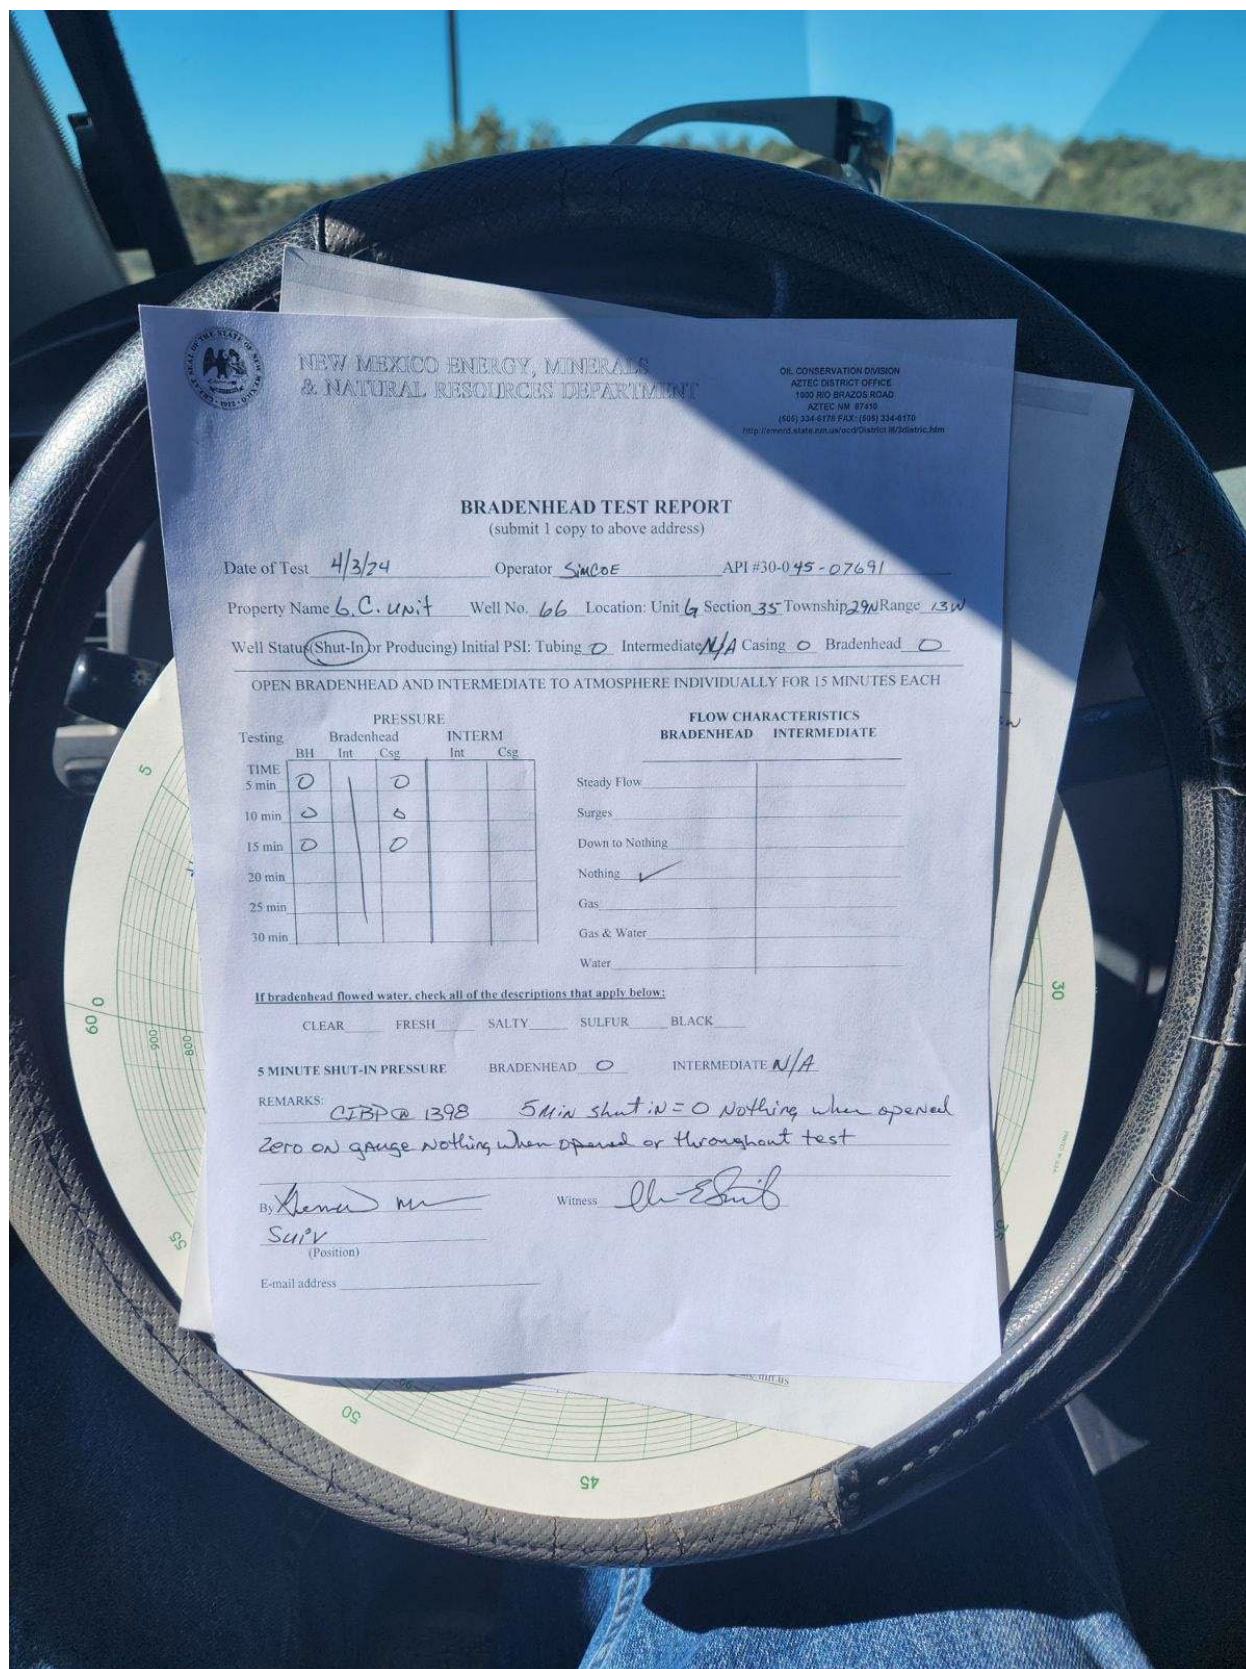 NEW MEXICO ENERGY, MINERALS
& NATURAL RESOURCES DEPARTMENT
OIL CONSERVATION DIVISION
AZTEC DISTRICT OFFICE
1000 RIO BRAZOS ROAD
AZTEC NM 87410
(505) 334-6178 FAX: (505) 334-6170
http://emnrd.state.nm.us/ocd/District III/3distric.htm
BRADENHEAD TEST REPORT
(submit 1 copy to above address)
Date of Test 4/3/24 Operator SIMCOE API #30-045-07691
Property Name G.C. UNIT Well No. 66 Location: Unit G Section 35 Township 29N Range 13W
Well Status (Shut-In or Producing) Initial PSI: Tubing 0 Intermediate N/A Casing 0 Bradenhead 0
OPEN BRADENHEAD AND INTERMEDIATE TO ATMOSPHERE INDIVIDUALLY FOR 15 MINUTES EACH
PRESSURE
Testing Bradenhead INTERM
BH Int Csg Int Csg
TIME
5 min 0 0
10 min 0 0
15 min 0 0
20 min
25 min
30 min
FLOW CHARACTERISTICS
BRADENHEAD INTERMEDIATE
Steady Flow
Surges
Down to Nothing
Nothing ✓
Gas
Gas & Water
Water
If bradenhead flowed water, check all of the descriptions that apply below:
CLEAR FRESH SALTY SULFUR BLACK
5 MINUTE SHUT-IN PRESSURE BRADENHEAD 0 INTERMEDIATE N/A
REMARKS: CIBP @ 1398 5 Min shut in = 0 Nothing when opened
Zero on gauge Nothing when opened or throughout test
By Witness
(Position)
E-mail address
5
60 0
900
800
55
50
45
30